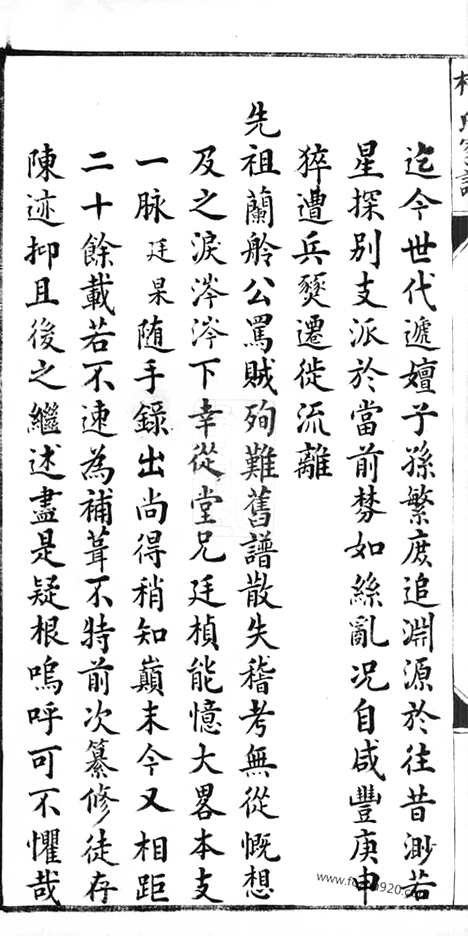 迄今世代遞嬗子孫繁庶追淵源於往昔渺若
星探別支派於當前棼如絲亂况自咸豐庚申
猝遭兵燹遷徙流離
先祖蘭舲公罵賊殉難舊譜散失稽考無從慨想
及之淚涔涔下幸從堂兄廷楨能憶大畧本支
一脉廷杲随手錄出尚得稍知巔末今又相距
二十餘載若不速為補葺不特前次纂修徒存
陳迹抑且後之繼述盡是疑根嗚呼可不懼哉